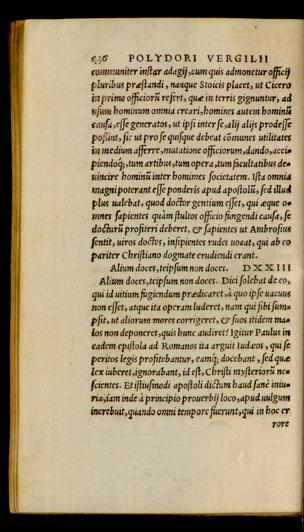 436 POLYDORI VERGILII
communiter instar adagij, cum quis admonetur officij
pluribus præstandi, nanque Stoicis placet, ut Cicero
in primo officiorũ refert, quæ in terris gignuntur, ad
usum hominum omnia creari, homines autem hominũ
causa, esse generatos, ut ipsi inter se, alij alijs prodesse
possint, sic ut pro se quisque debeat cõmunes utilitates
in medium afferre, mutatione officiorum, dando, acci
piendoq́;, tum artibus, tum opera, tum facultatibus de-
uincire hominũ inter homines societatem. Ista omnia
magni poterant esse ponderis apud apostolũ, sed illud
plus ualebat, quod doctor gentium esset, qui æque o-
mnes sapientes quàm stultos officio fungendi causa, se
docturũ profiteri deberet, & sapientes ut Ambrosius
sentit, uiros doctos, insipientes rudes uocat, qui ab eo
pariter Christiano dogmate erudiendi erant.
Alium doces, teipsum non doces. DXXIII
Alium doces, teipsum non doces. Dici solebat de eo,
qui id uitium fugiendum prædicaret, à quo ipse uacuus
non esset, atque ita operam luderet, nam qui sibi sum-
psit, ut aliorum mores corrigeret, & suos itidem ma-
los non deponeret, quis hunc audiret? Igitur Paulus in
eadem epistola ad Romanos ita arguit Iudæos, qui se
peritos legis profitebantur, eamq́; docebant, sed quæ
lex iuberet, ignorabant, id est, Christi mysteriorũ ne-
scientes. Et istiusmodi apostoli dictum haud sanè iniu-
ria, iam inde à principio prouerbij loco, apud uulgum
increbuit, quando omni tempore fuerunt, qui in hoc er
rore